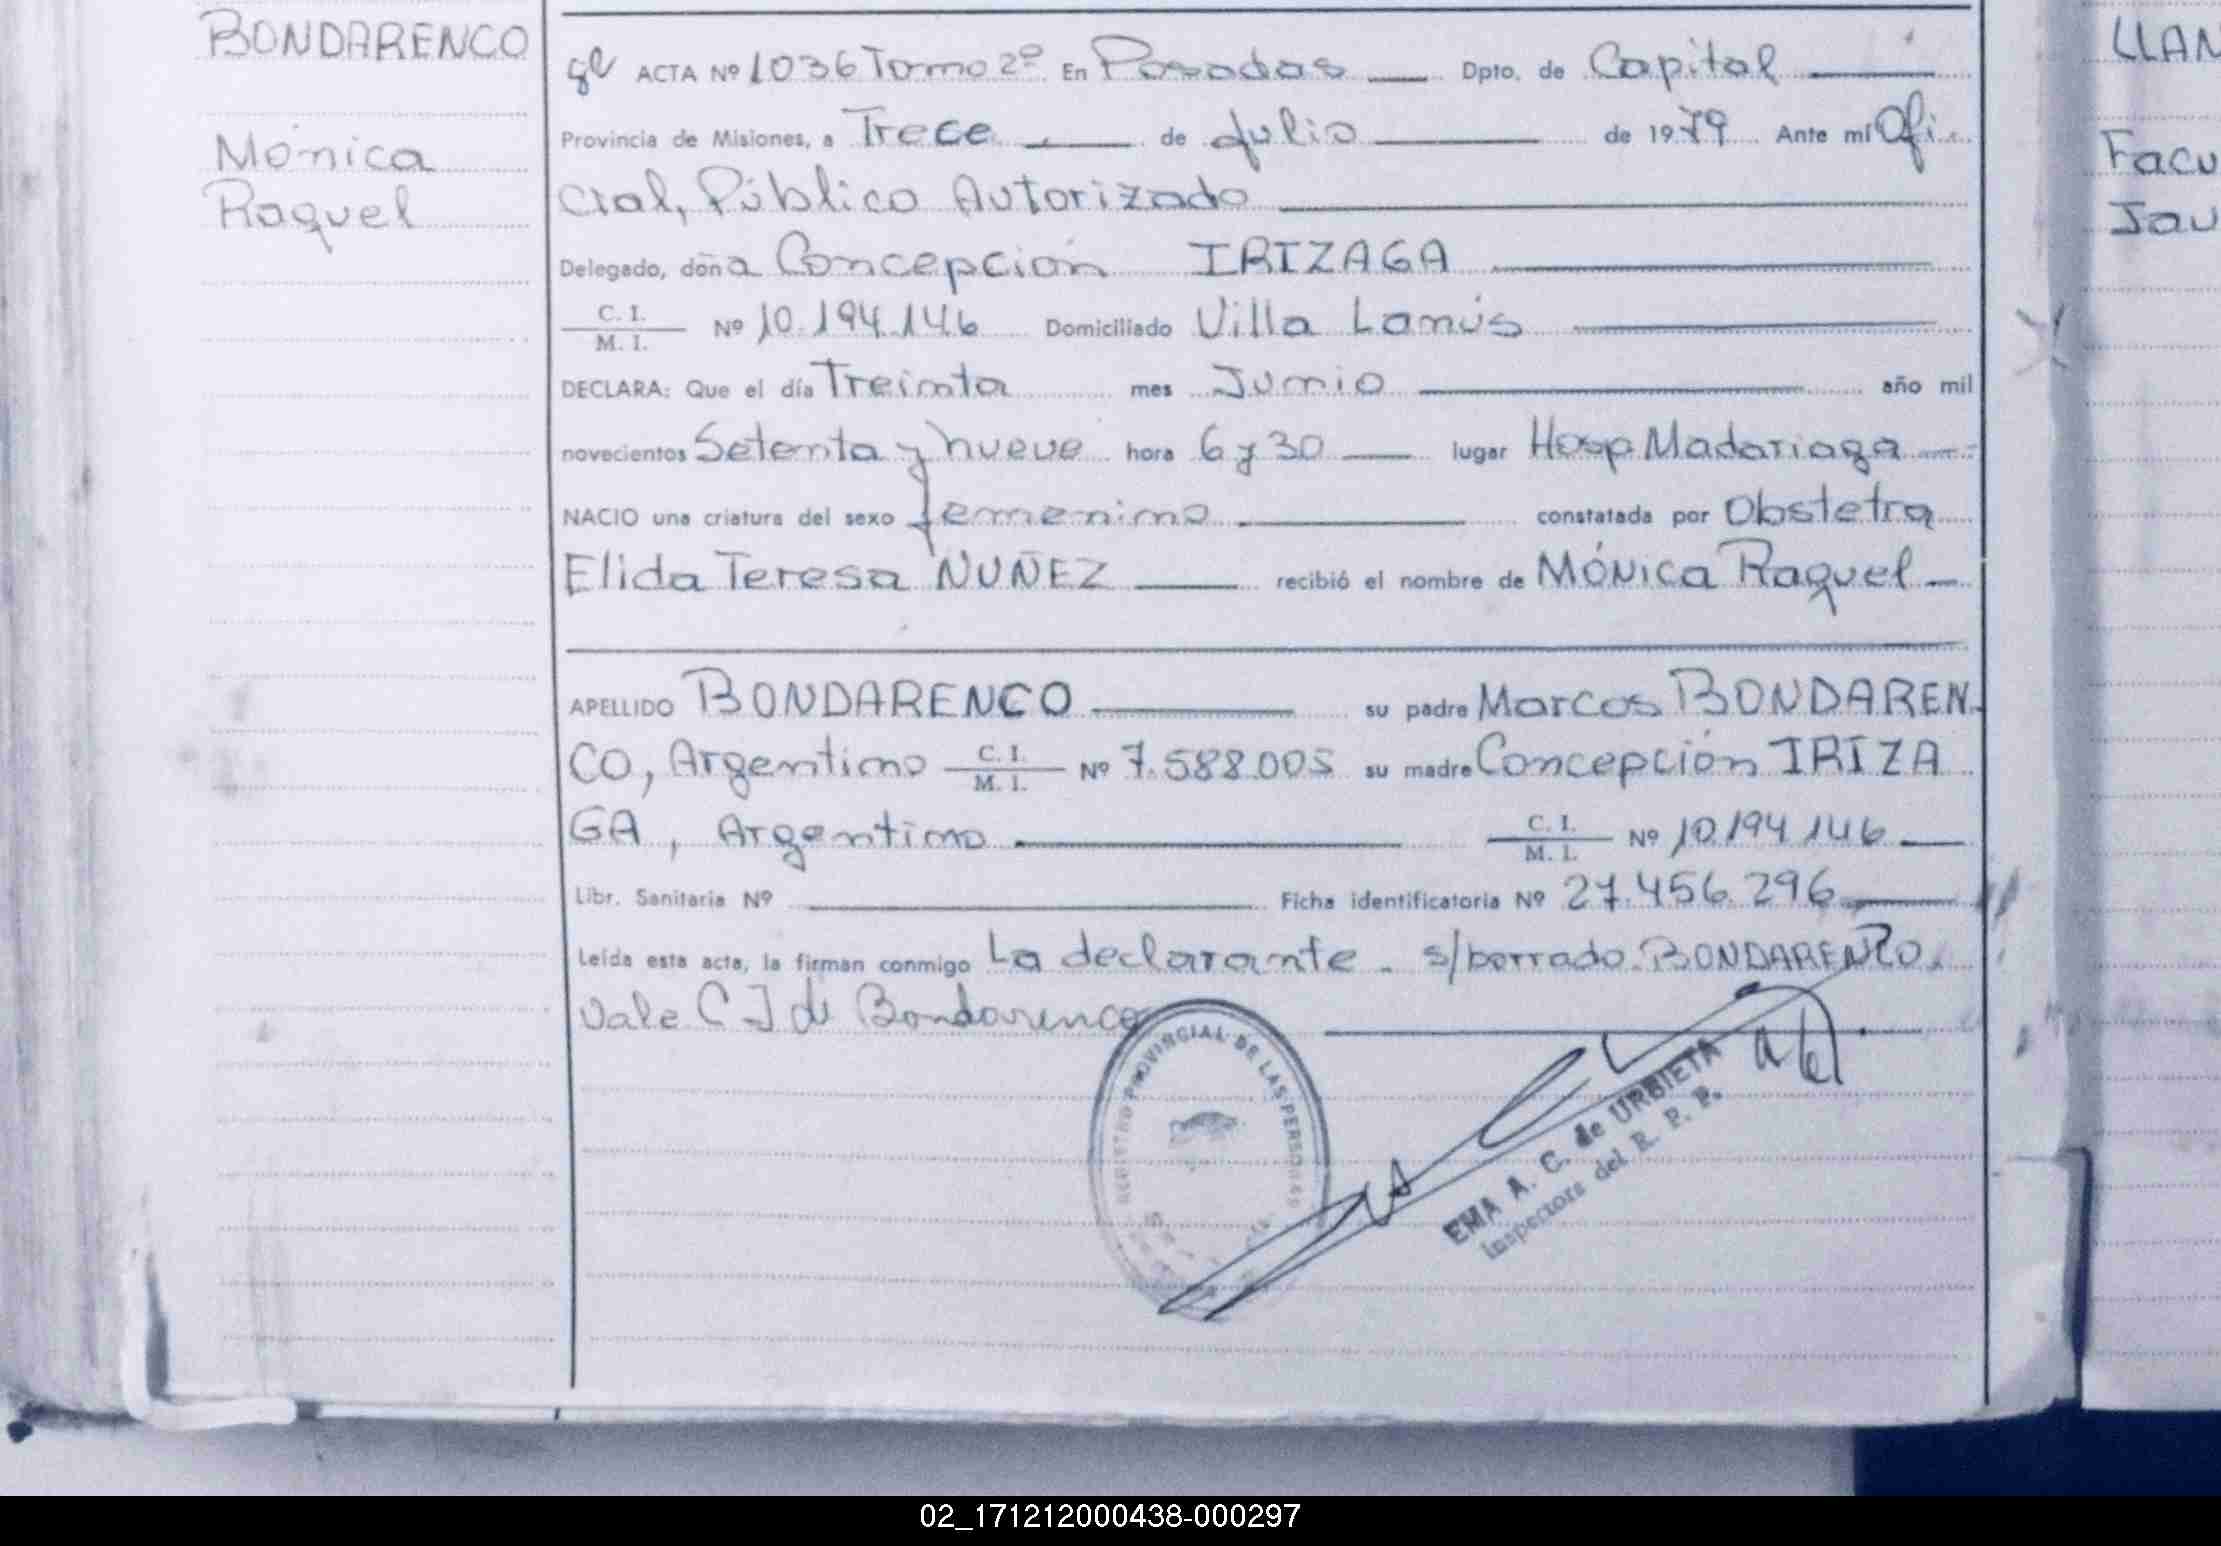 BONDARENCO
Mónica
Raquel
ACTA Nº 1036 Tomo 2º En Posadas Dpto. de Capital
Provincia de Misiones, a Trece de Julio de 1979 Ante mí Ofi
cial, Público Autorizado
Delegado, doña Concepción IRIZAGA
C. I.
M. I. Nº 10.194.146 Domiciliado Villa Lanús
DECLARA: Que el día Treinta mes Junio año mil
novecientos Setenta y nueve hora 6 y 30 lugar Hosp Madariaga
NACIO una criatura del sexo femenino constatada por Obstetra
Elida Teresa NUÑEZ recibió el nombre de MÓNica Raquel
APELLIDO BONDARENCO su padre Marcos BONDAREN
CO, Argentino C. I. M. I. Nº 7.588.005 su madre Concepción IRIZA
GA, Argentino C. I. M. I. Nº 10.194.146
Libr. Sanitaria Nº Ficha identificatoria Nº 27.456.296
Leída esta acta, la firman conmigo La declarante. s/borrado. BONDARENCO.
Vale C I de Bondarenco
REGISTRO PROVINCIAL DE LAS PERSONAS
EMA A. C. de URBIETA
Inspectora del R. P. P.
LLAN
Facu
Jav
02_171212000438-000297